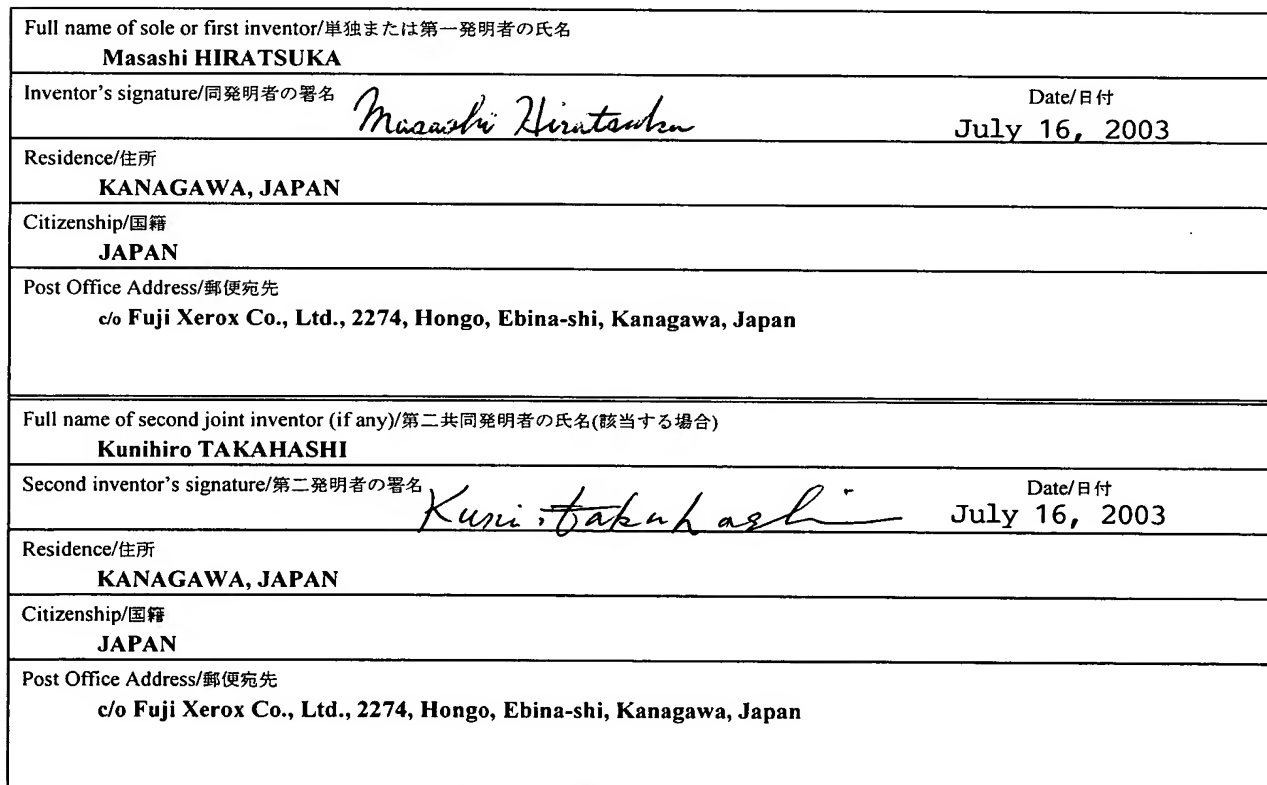 Full name of sole or first inventor/単独または第一発明者の氏名
Masashi HIRATSUKA
Inventor's signature/同発明者の署名 Masashi Hiratsuka
Date/日付
July 16, 2003
Residence/住所
KANAGAWA, JAPAN
Citizenship/国籍
JAPAN
Post Office Address/郵便宛先
c/o Fuji Xerox Co., Ltd., 2274, Hongo, Ebina-shi, Kanagawa, Japan
Full name of second joint inventor (if any)/第二共同発明者の氏名(該当する場合)
Kunihiro TAKAHASHI
Second inventor's signature/第二発明者の署名 Kuni takahashi
Date/日付
July 16, 2003
Residence/住所
KANAGAWA, JAPAN
Citizenship/国籍
JAPAN
Post Office Address/郵便宛先
c/o Fuji Xerox Co., Ltd., 2274, Hongo, Ebina-shi, Kanagawa, Japan